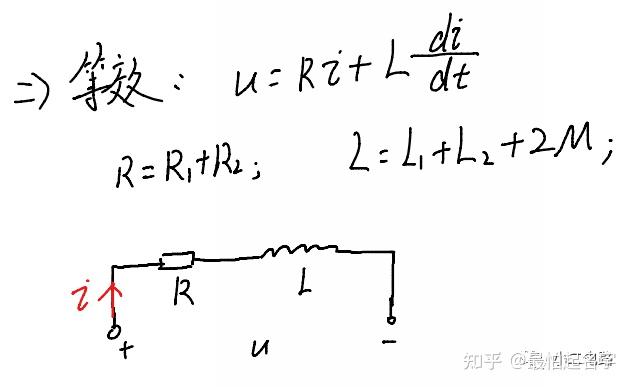 ⇒ 等效： u = Ri + L di/dt
R = R₁ + R₂; L = L₁ + L₂ + 2M;
i R L
+ u -
知乎